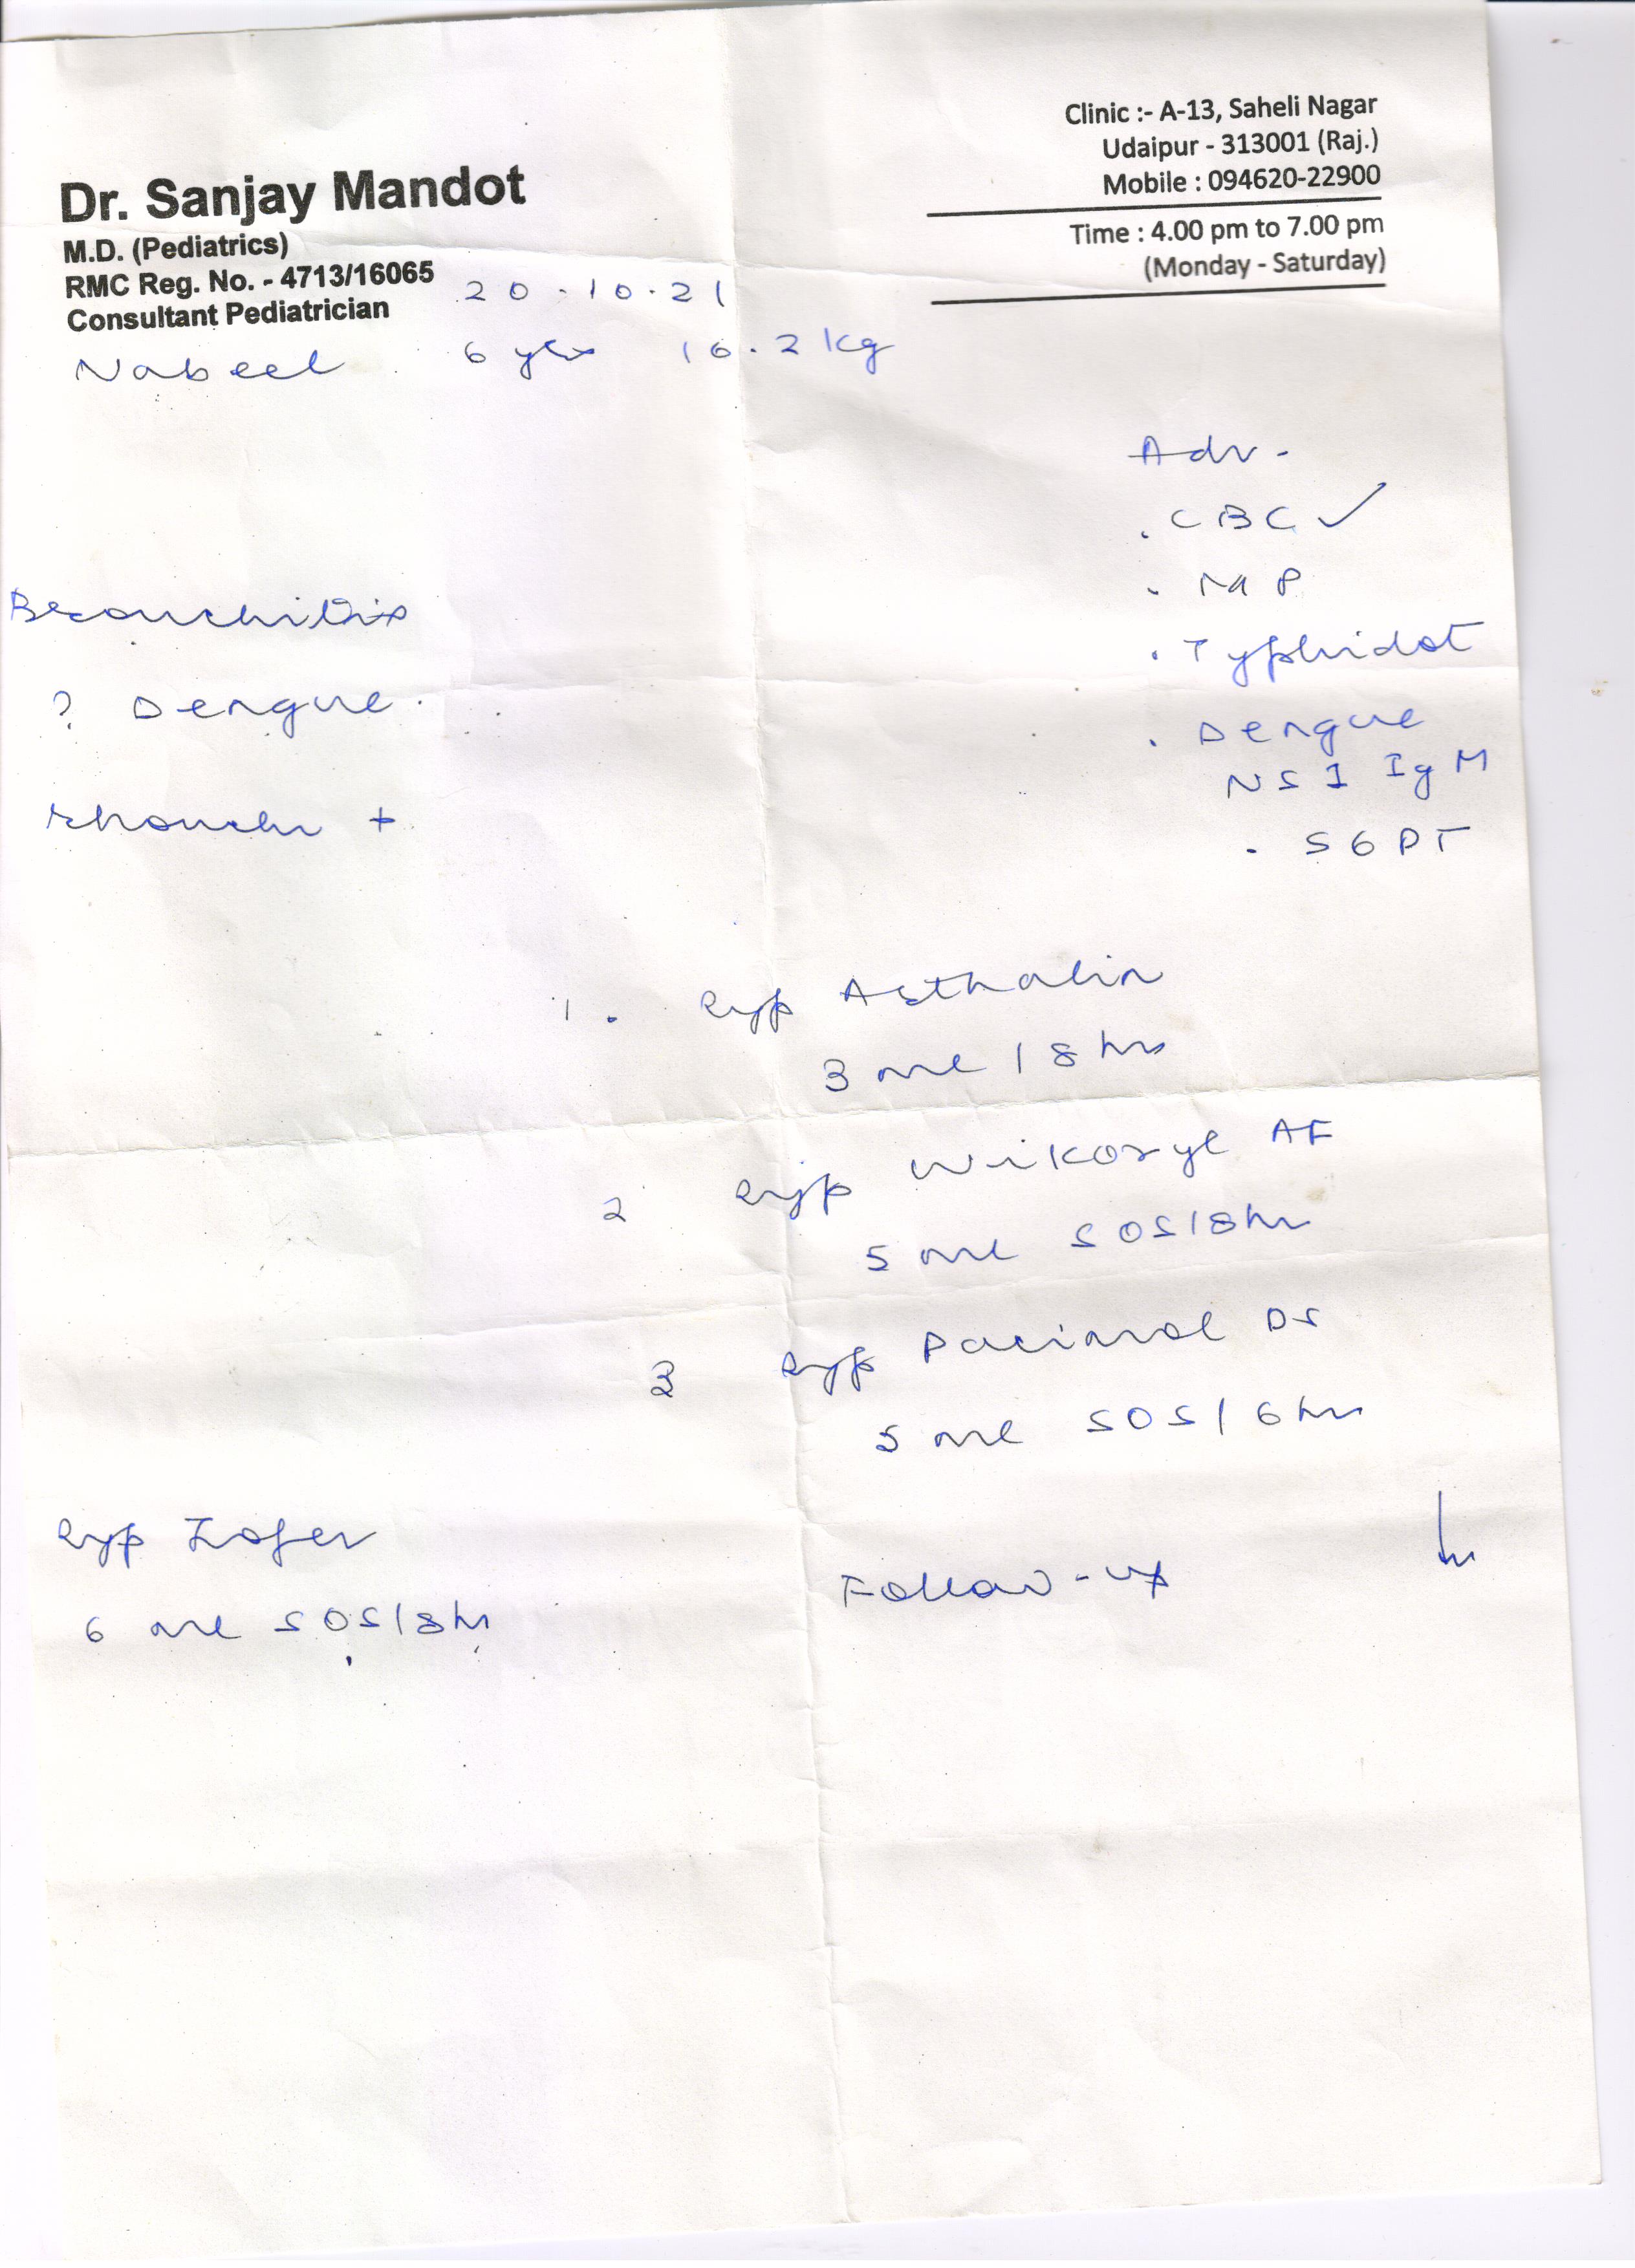 Dr. Sanjay Mandot
M.D. (Pediatrics)
RMC Reg. No. - 4713/16065
Consultant Pediatrician
Clinic :- A-13, Saheli Nagar
Udaipur - 313001 (Raj.)
Mobile : 094620-22900
Time : 4.00 pm to 7.00 pm
(Monday - Saturday)
20.10.21
Nabeel 6 yrs 16.2 kg
Adv -
. CBC ✓
. MP
. Typhidot
. Dengue
NS1 IgM
. SGPT
Bronchitis
? Dengue.
Rhonchi +
1. Syp Asthalin
3 ml / 8 hrs
2 Syp Wikoryl AF
5 ml SOS/8hr
3 Syp Pacimol DS
5 ml SOS/6hr
Syp Zofer
6 ml SOS/8hr
Follow-up